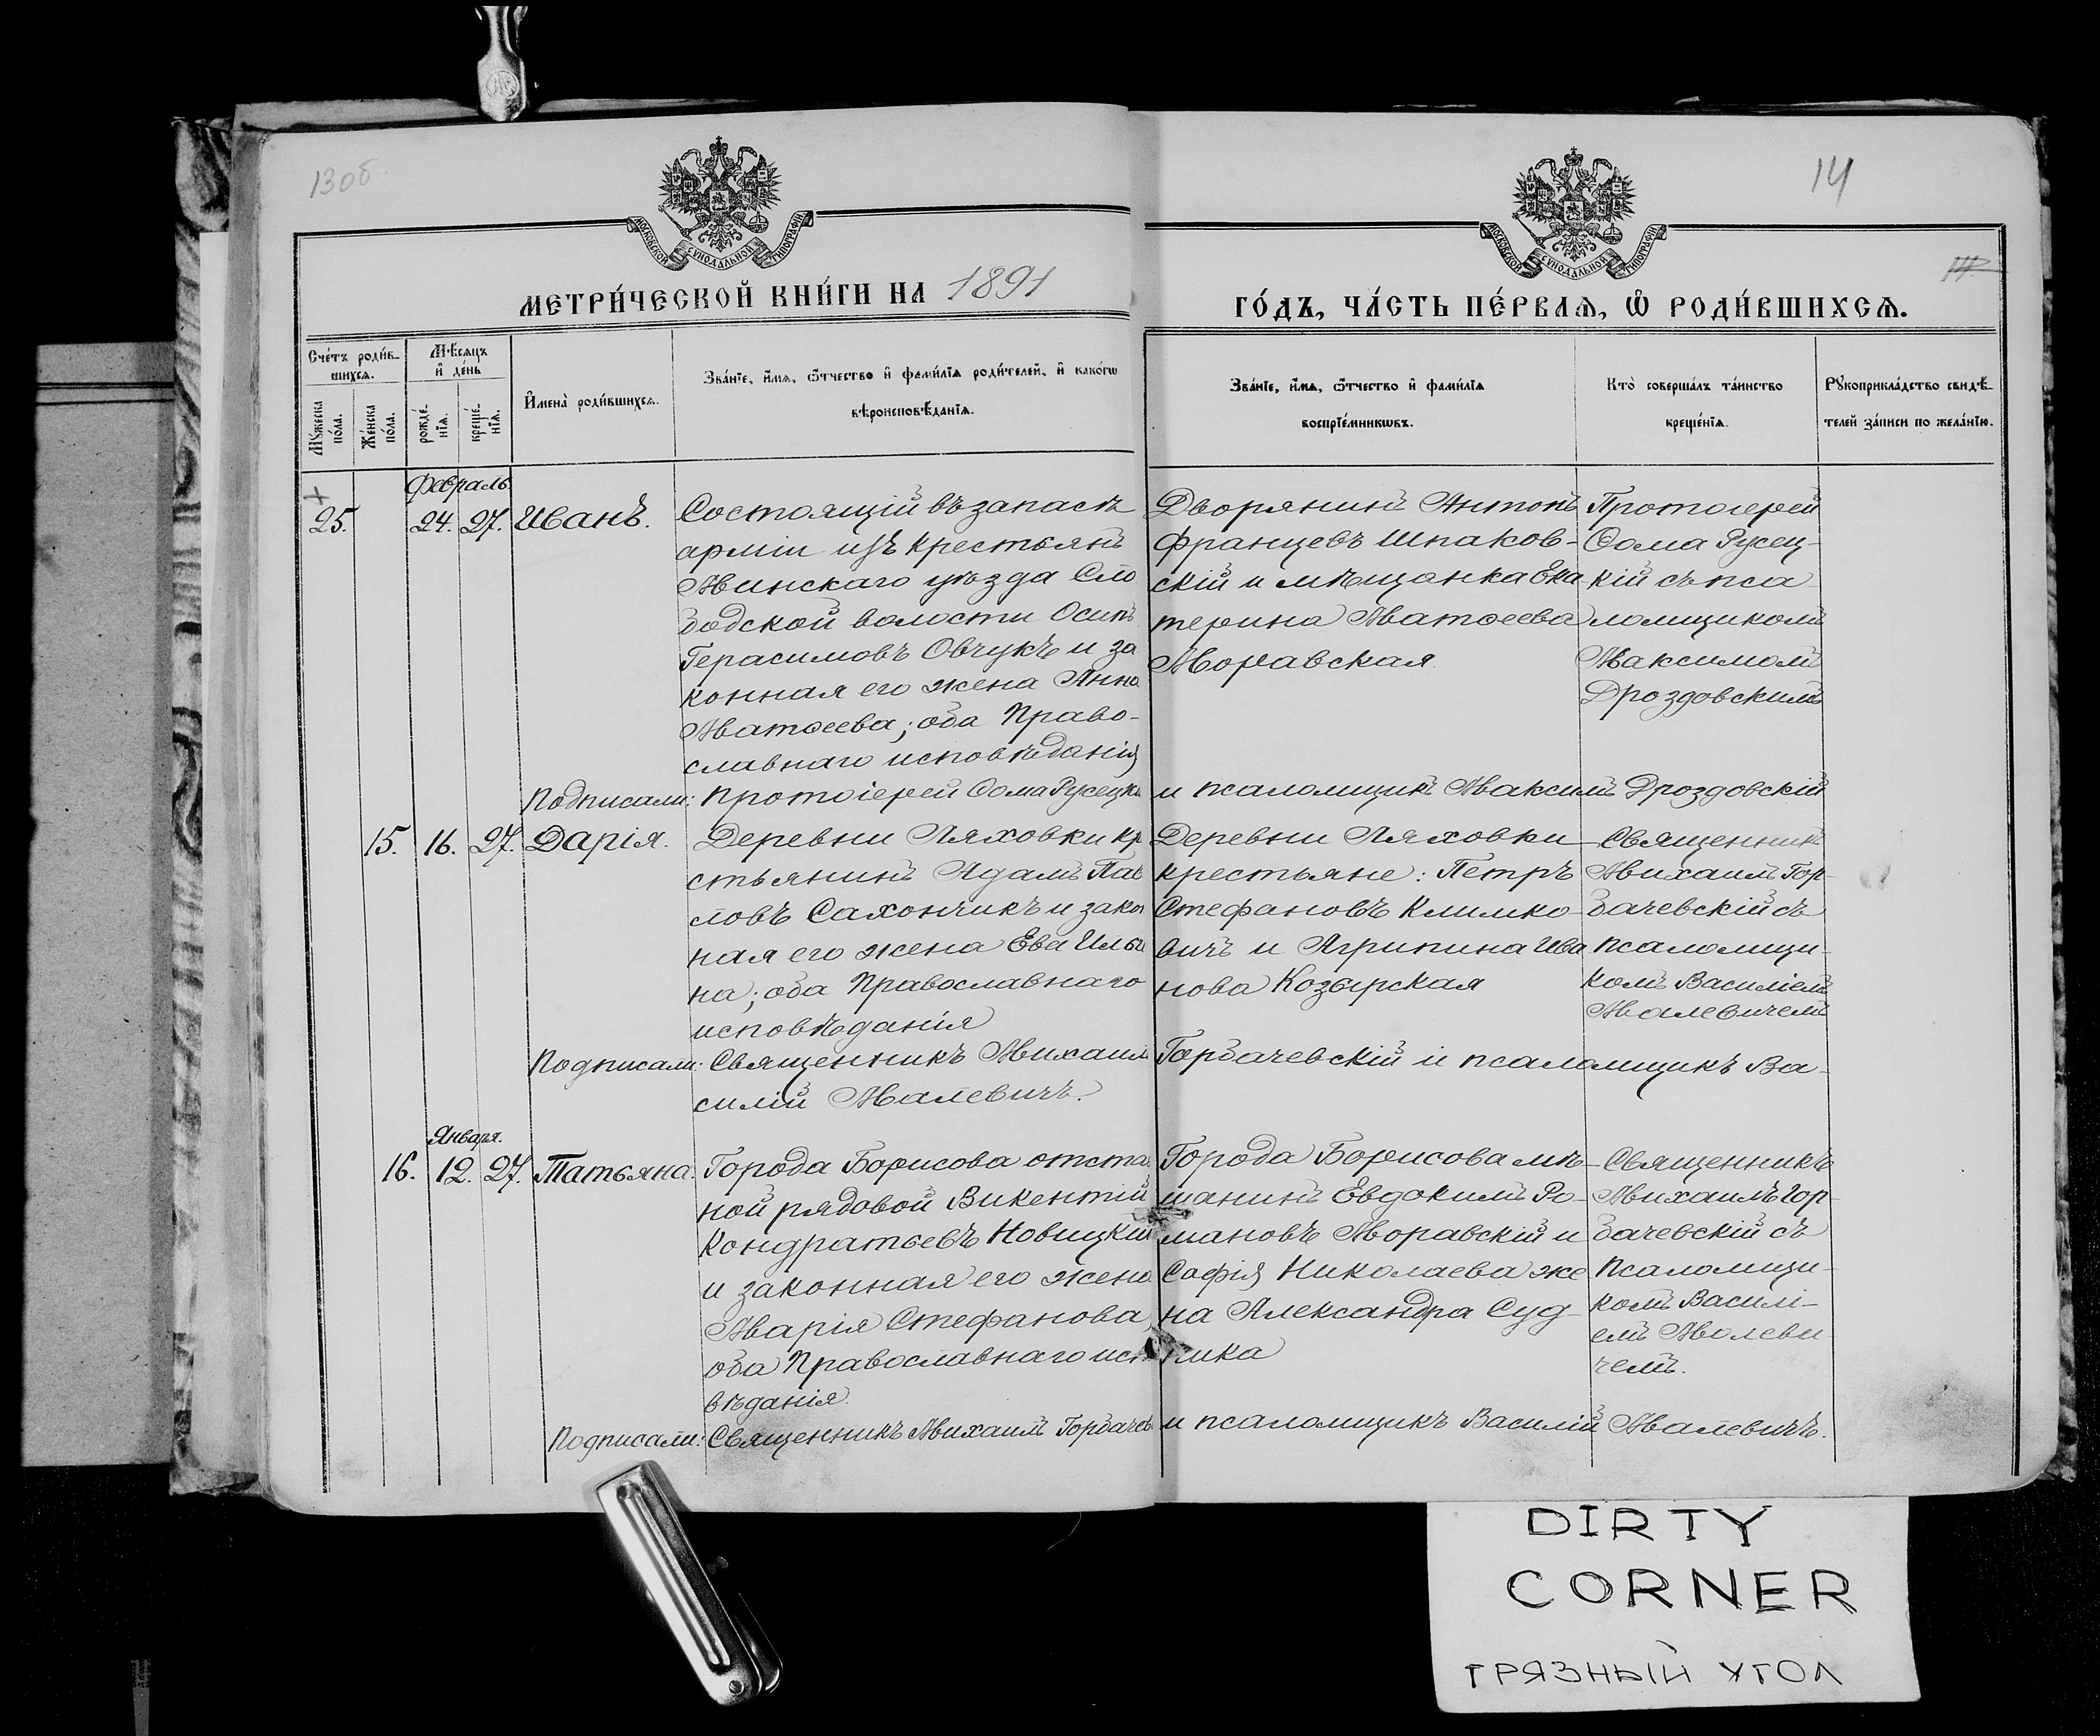 130б
14
МОСКОВСКОЙ СѴНОДАЛЬНОЙ ТИПОГРАФІИ
МОСКОВСКОЙ СѴНОДАЛЬНОЙ ТИПОГРАФІИ
МЕТРИ́ЧЕСКОЙ КНИ́ГИ НА 1891
ГО́ДЪ, ЧА́СТЬ ПЕ́РВАѦ, Ѡ РОДИ́ВШИХСѦ.
Сче́тъ роди́в-
шихсѧ.
Мꙋ́жеска по́ла.
Же́нска по́ла.
Мѣ́сѧцъ
и҆ де́нь
рожде́-
нїѧ.
креще́-
нїѧ.
И҆мена̀ роди́вшихсѧ.
Зва́нїе, и҆́мѧ, ѻ҆́тчество и҆ фами́лїѧ роди́телей, и҆ како́гѡ
вѣроисповѣ́данїѧ.
Зва́нїе, и҆́мѧ, ѻ҆́тчество и҆ фами́лїѧ
воспрїе́мникѡвъ.
Кто̀ соверша́лъ та́инство
креще́нїѧ.
Рꙋкоприкла́дство свидѣ́-
телей за́писи по жела́нїю.
Февраль.
25. 24. 27. Иванъ.
Состоящій въ запасѣ
арміи изъ крестьянъ
Минскаго уѣзда Сло
бодской волости Осипъ
Герасимовъ Овчукъ и за
конная его жена Анна
Матѳеева; оба Право-
славнаго исповѣданія
Дворянинъ Антонъ
Францевъ Шпаков-
скій и мѣщанка Ека
терина Матѳеева
Моравская.
Протоіерей
Ѳома Русец-
кій съ пса
ломщикомъ
Максимомъ
Дроздовскимъ
Подписали: Протоіерей Ѳома Русецкі и псаломщикъ Максимъ Дроздовскій
15. 16. 27. Дарія.
Деревни Ляховки кр
стьянинъ Адамъ Пав
ловъ Сахончикъ и закон
ная его жена Ева Ильи
на; оба Православнаго
исповѣданія
Деревни Ляховки
крестьяне: Петръ
Стефановъ Климко-
вичъ и Агрипина Ива
нова Козырская
Священникъ
Михаилъ Гор-
бачевскій съ
псаломщи-
комъ Василіемъ
Малевичемъ
Подписали: Священникъ Михаилъ Горбачевскій и псаломщикъ Ва-
силій Малевичъ.
Января.
16. 12. 27. Татьяна.
Города Борисова отста
ной рядовой Викентій
Кондратьевъ Новицкій
и законная его жена
Марія Стефанова,
оба Православнаго исп
вѣданія.
Города Борисова мѣ-
щанинъ Евдокимъ Ро-
мановъ Моравскій и
Софія Николаева же
на Александра Суд
ника
Священникъ
Михаилъ Гор-
бачевскій съ
Псаломщи-
комъ Василі-
емъ Малеви
чемъ.
Подписали: Священникъ Михаилъ Горбачев и псаломщикъ Василій Малевичъ.
DIRTY
CORNER
ГРЯЗНЫЙ УГОЛ